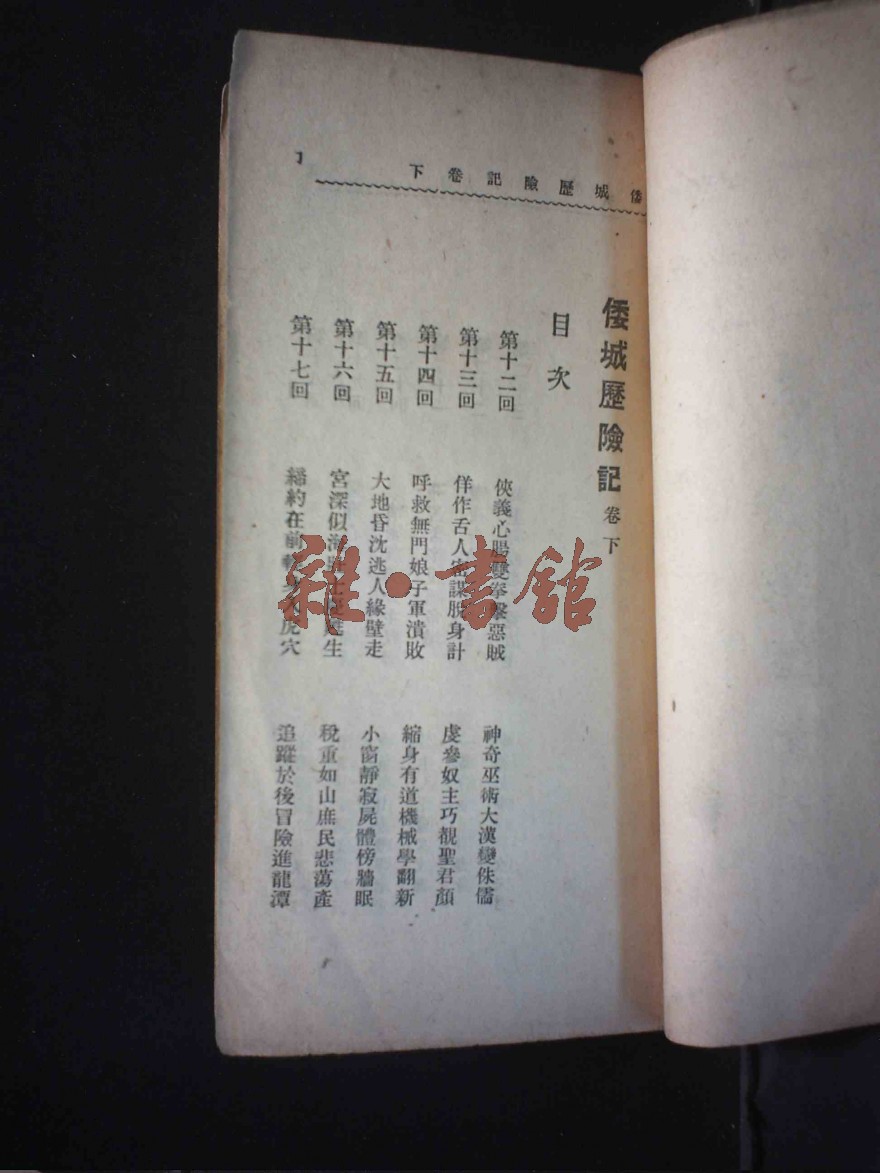 倭城歷險記卷下
1
倭城歷險記 卷下
目次
第十二回 俠義心腸雙拳擊惡賊 神奇巫術大漢變侏儒
第十三回 佯作舌人密謀脫身計 虔參奴主巧覩聖君顏
第十四回 呼救無門娘子軍潰敗 縮身有道機械學翻新
第十五回 大地昏沈逃人緣壁走 小窗靜寂屍體傍牆眠
第十六回 宮深似海 生 稅重如山庶民悲蕩產
第十七回 約在前 虎穴 追蹤於後冒險進龍潭
雜·書館